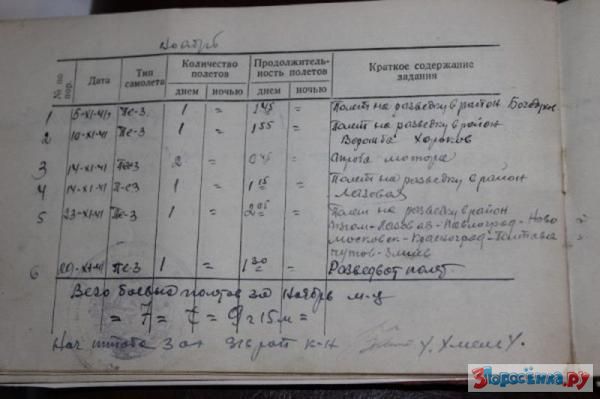 Ноябрь
№ по пор. Дата Тип самолета Количество полетов Продолжитель-ность полетов Краткое содержание задания
днем ночью днем ночью
1 5-XI-41 Пе-3 1 = 1 45 = Полет на разведку в район
2 10-XI-41 Пе-3 1 = 1 55 = Полет на разведку в район
Ворожба Хорьков
3 14-XI-41 Пе-3 2 = 0 45 = мотора
4 14-XI-41 Пе-3 1 = 1 15 = Полет на разведку в район
Лозовая
5 23-XI-41 Пе-3 1 = 2 05 = Полет на разведку в район
Изюм-Лозовая-Павлоград-Ново
московск-Красноград-Полтава
Чутов-Змиев
6 29-XI-41 Пе-3 1 = 1 30 = Разведыват полет.
Всего боевых полетов за Ноябрь м-ц
= 7 = 9 ч 15 м =
Нач штаба 3 к-н
3Поросёнка.ру